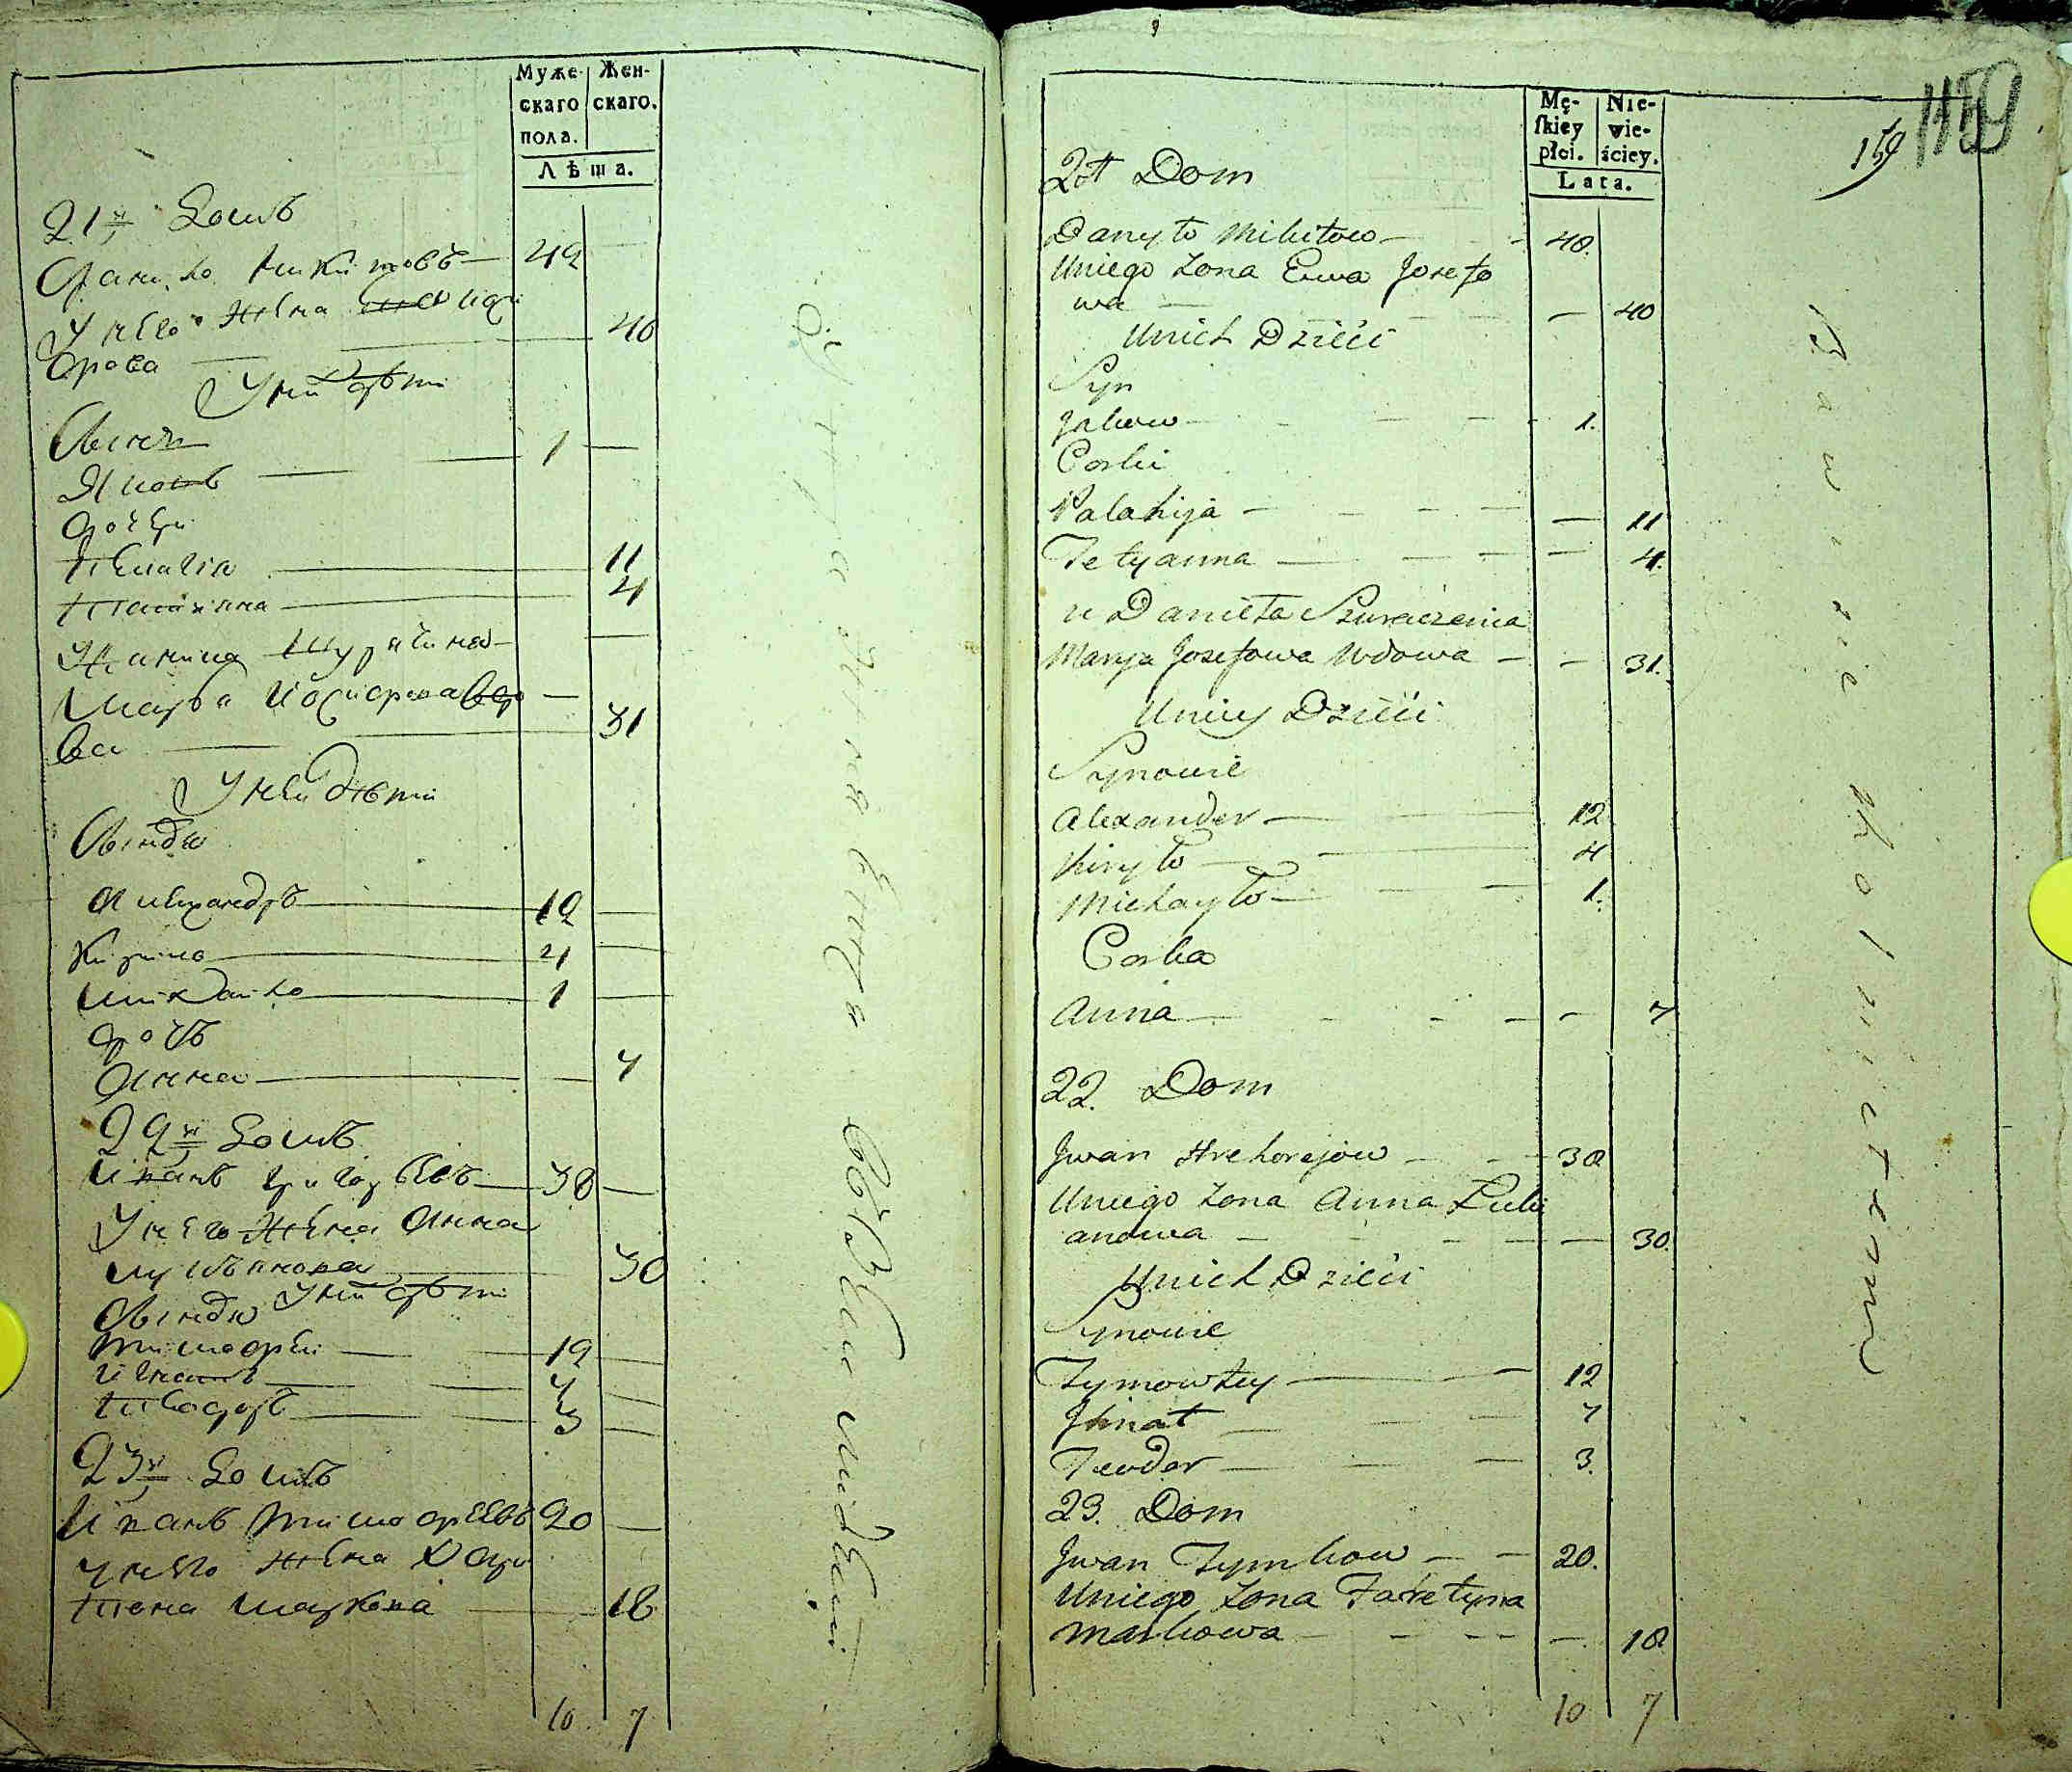 Муже- Жен-
скаго скаго.
пола.
Лѣта.
21й Домъ
Данило Никитовъ — 42
У него жена Ева Иоси
фова — 40
У них дѣти
Сынъ
Яковъ — 1 —
Дочери
Пелагія — 11
Татіянна — 4
Марья Иосифова вдо
ва — 31
У неи дѣти
Сыновя
Александръ — 12 —
Кирило — 4 —
Михайло — 1 —
Дочь
Анна — 7
22й Домъ
Иванъ Григорьевъ — 38 —
У него жена Анна
Лукьянова — 30
У них дѣти
Сыновя
Тимофей — 12 —
Игнатъ — 7 —
Теодоръ — 3 —
23й Домъ
Иванъ Тимофеевъ 20 —
У него жена Хари
тена Маркова — 18
10 7
159
Mę- Nie-
skiey wie-
płci. ściey.
Lata.
21 Dom
Danyło Mikitow — 42
Uniego Zona Ewa Josefo
wa — 40
Unich Dzieci
Syn
Jakow — 1.
Corki
Palahija — 11
Tetyanna — 4.
Marya Josefowa Wdowa — 31.
Uniey Dzieci
Synowie
Alexander — 12
Kiryło — 4
Michayło — 1.
Corka
Anna — 7
22. Dom
Jwan Hrehorejow — 38
Uniego Zona Anna Łuki
anowa — 30.
Unich Dzieci
Synowie
Tymowtey — 12
Jhnat — 7
Teodor — 3.
23. Dom
Jwan Tymkow — 20.
Uniego Zona
Markowa — 18
10 7